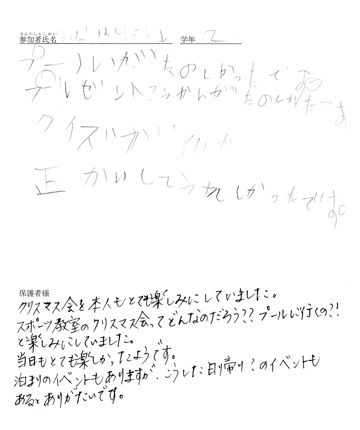 さんかしゃしめい
参加者氏名
学年 2
プールがたのしかったです
プレゼントこうかんがたのしかったです
クイズがい
正かいしてうれしかったです。
保護者様
クリスマス会を本人もとても楽しみにしていました。
スポーツ教室のクリスマス会ってどんなのだろう??プールに行くの?!
と楽しみにしていました。
当日もとても楽しかったようです。
泊まりのイベントもありますが、こうした日帰り?のイベントも
あるとありがたいです。